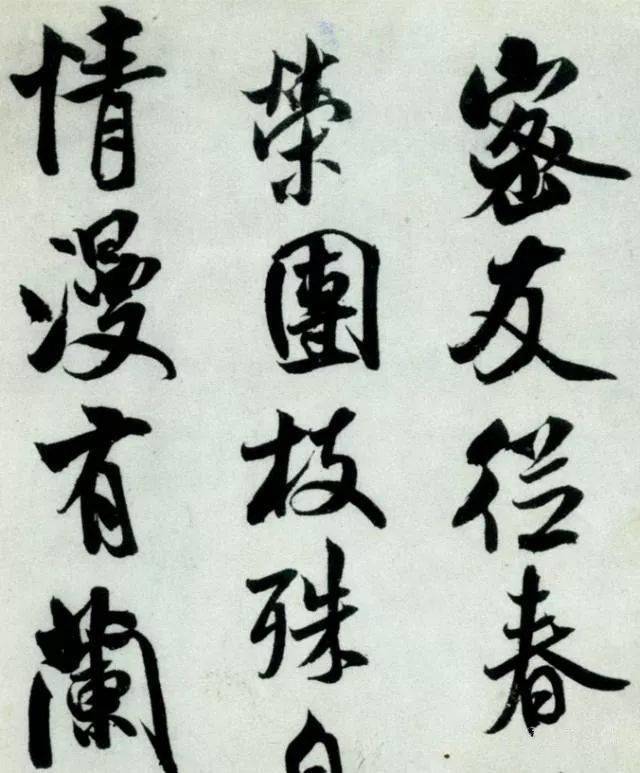 密友從春
榮團枝殊
情漫有蘭